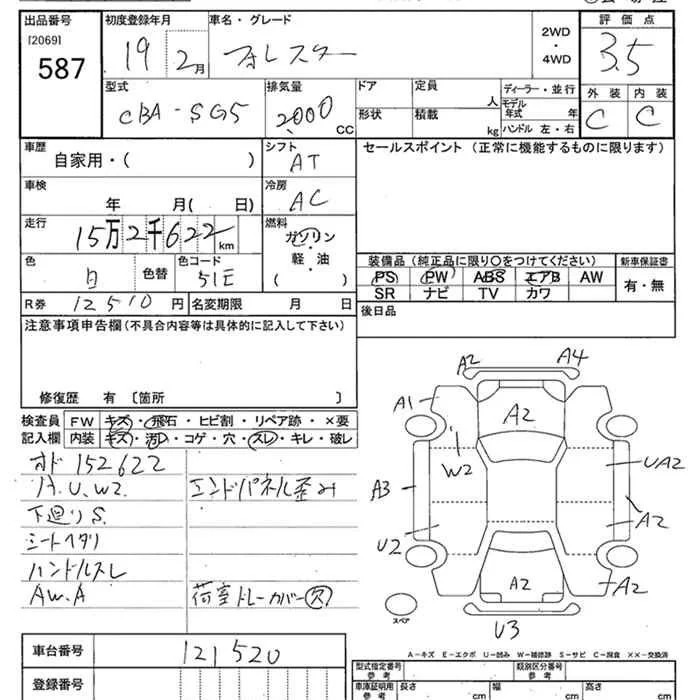 出品番号 初度登録年月 車名・グレード 2WD・4WD 評価点
[2069]
587 19 2月 フォレスター 3.5
型式 排気量 ドア 定員 人 ディーラー・並行 外装 内装
CBA-SG5 2,000 CC 形状 積載 kg モデル年式 年 ハンドル 左・右 C C
車歴 自家用・( ) シフト AT セールスポイント (正常に機能するものに限ります)
車検 年 月( 日) 冷房 AC
走行 15万2千622km 燃料 ガソリン・軽・油 ( )
色 白 色替 色コード 51E
装備品 (純正品に限り○をつけてください) 新車保証書
PS PW ABS エアB AW 有・無
SR ナビ TV カワ
R券 12510円 名変期限 月 日 後日品
注意事項申告欄 (不具合内容等は具体的に記入して下さい)
修復歴 有 [箇所 ]
検査員 FW キズ・飛石・ヒビ割・リペア跡・×要
記入欄 内装 キズ・汚・コゲ・穴・スレ・キレ・破レ
オド 152622
A.U.W2. エンドパネル歪み
下廻りS.
シートヘタリ
ハンドルスレ
AW.A 荷室トレーカバー欠
A2 A4
A1 A2
W2 UA2
A3
U2 A2
A2 A2
スペア
U3
A-キズ E-エクボ U-凹み W-補修跡 S-サビ C-腐食 ××-交換済
車台番号 121520
登録番号
型式指定番号 参考 類別区分番号 参考
車庫証明用 参考 長さ cm 幅 cm 高さ cm